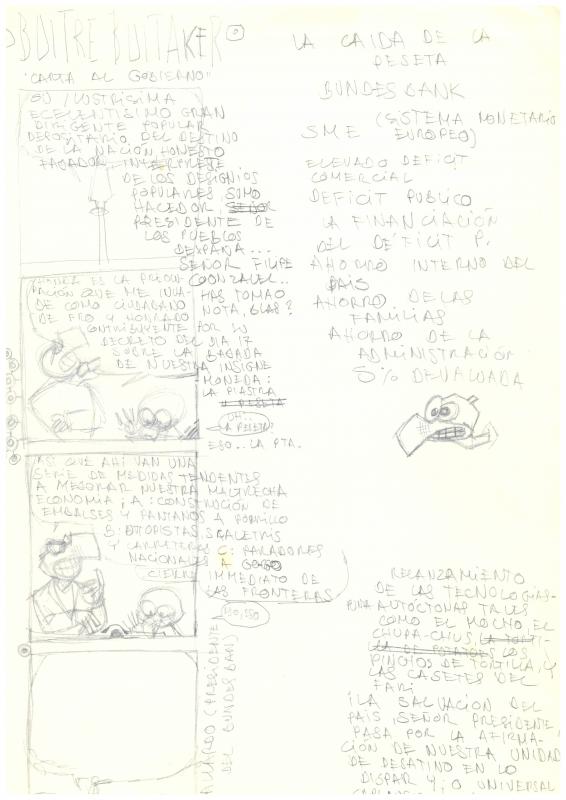 BUITRE BUITAKER
"CARTA AL GOBIERNO"
ILUSTRISIMA
ECELENTISIMO GRAN
DIRIGENTE POPULAR
DEPOSITARIO DEL DESTINO
DE LA NACIÓN HONESTO
INTERPRETE
DE LOS DESIGNIOS
POPULARES, SUMO
HACEDOR SEÑOR
PRESIDENTE DE
LOS PUEBLOS
DEXPAÑA...
SEÑOR FILIPE
GONZALEL..
HAS TOMAO
NOTA, BLAS?
ES LA PREOCU-
PACIÓN QUE ME INVA-
DE COMO CIUDADANO
DE PRO Y HONRADO
CONTRIBUYENTE POR SU
DECRETO DEL DIA 17
SOBRE LA BAJADA
DE NUESTRA INSIGNE
MONEDA:
LA PIASTRA
LA PESETA
UH..
LA PESETA?
ESO.. LA PTA.
ASI QUE AHI VAN UNA
SERIE DE MEDIDAS TENDENTES
A MEJORAR NUESTRA MALTRECHA
ECONOMIA; A: CONSTRUCIÓN DE
EMBALSES Y PANTANOS A PORRILLO
B:
Y CARRETERAS
NACIONALES
C: PARADORES
A GOGO
CIERRE
IMMEDIATO DE
LAS FRONTERAS
(PRESIDENTE
DEL BUNDES BANK)
LA CAIDA DE LA
PESETA
BUNDESBANK
(SISTEMA MONETARIO
SME EUROPEO)
ELEVADO DEFICIT
COMERCIAL
DEFICIT PUBLICO
LA FINANCIACIÓN
DEL DÉFICIT P.
AHORRO INTERNO DEL
PAÍS
AHORRO DE LAS
FAMILIAS
AHORRO DE LA
ADMINISTRACIÓN
5% DEVALUADA
RELANZAMIENTO
DE LAS TECNOLOGIAS
AUTOCTONAS TALES
COMO EL MOCHO, EL
CHUPA-CHUS, LA TORTI-
LLA DE POTATOES LOS
PINCHOS DE TORTILLA, Y
LAS CASETES DEL
FARI
¡LA SALVACIÓN DEL
PAIS, SEÑOR PRESIDENTE,
PASA POR LA AFIRMA-
CIÓN DE NUESTRA UNIDAD
DE DESATINO EN LO
DISPAR Y, O UNIVERSAL